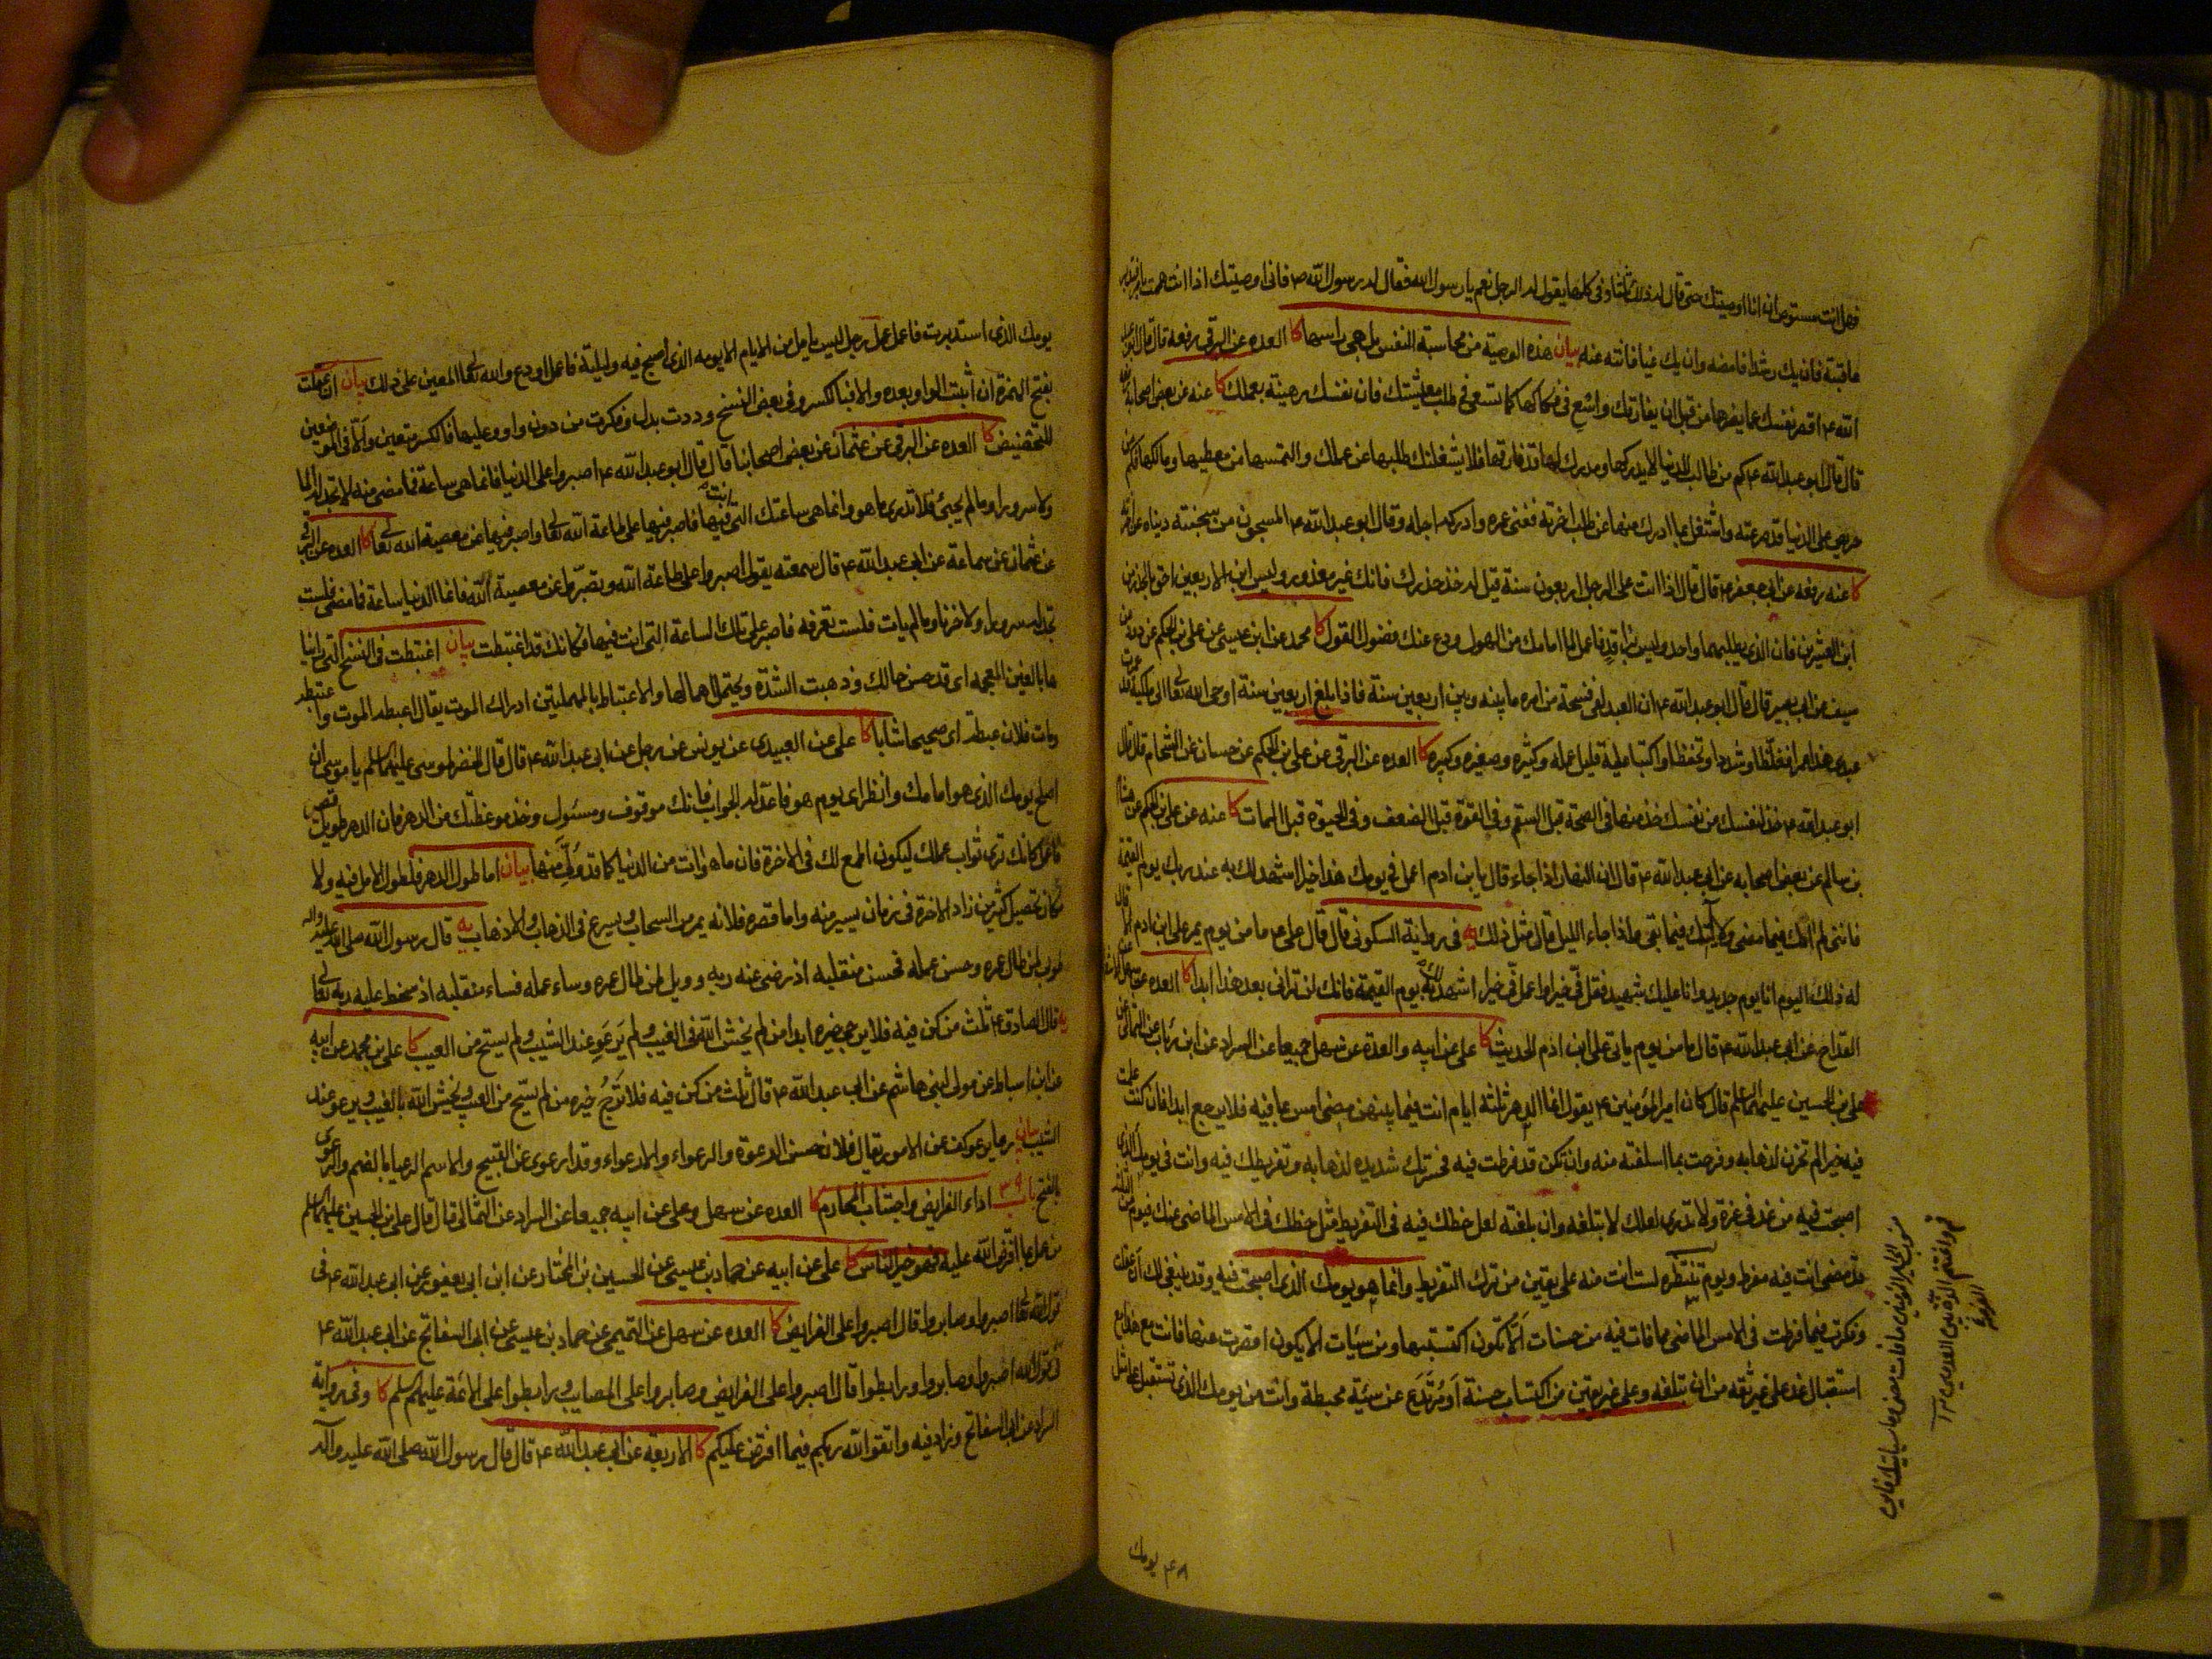 فهل انت مستوص ان انا اوصيتك حتى قال له ذلك ثلثا وفى كلها يقول له الرجل نعم يا رسول الله فقال له رسول الله ص فانى اوصيتك اذا انت هممت بامر فتدبر
عاقبته فان يك رشدا فامضه وان يك غيا فانته عنه بيان هذه الوصية من محاسبة النفس بل هى راسها كا العده عن البرقى رفعه قال قال ابو عبد
الله ع اقصر نفسك عما يضرها من قبل ان يفارقك واسع فى فكاكها كما تسعى فى طلب معيشتك فان نفسك رهينة بعملك كا عنه عن بعض اصحابه
قال قال ابو عبد الله ع كم من طالب للدنيا لا يدركها ومدرك لها قد فارقها فلا يشغلنك طلبها عن عملك والتمسها من معطيها ومالكها فكم من
حريص على الدنيا قد صرعته واشتغل بما ادرك منها عن طلب اخرته ففنى عمره وادركه اجله وقال ابو عبد الله ع المسجون من سجنته دنياه عن اخرته
كا عنه رفعه عن ابى جعفر ع قال قال اذا اتت على الرجل اربعون سنة قيل له خذ حذرك فانك غير معذور وليس ابن الاربعين احق بالحذر من
ابن العشرين فان الذى يطلبهما واحد وليس براقد فاعمل لما امامك من الهول ودع عنك فضول القول كا محمد عن ابن عيسى عن على بن الحكم عن داود عن
سيف عن ابى بصير قال قال ابو عبد الله ع ان العبد لفى فسحة من امره ما بينه وبين اربعين سنة فاذا بلغ اربعين سنة اوحى الله تعالى الى ملكيه قد عمرت
عبدى هذا عمرا فغلظا وشددا وتحفظا واكتبا عليه قليل عمله وكثيره وصغيره وكبيره كا العده عن البرقى عن على بن الحكم عن حسان عن الشحام قال قال
ابو عبد الله ع خذ لنفسك من نفسك خذ منها فى الصحة قبل السقم وفى القوة قبل الضعف وفى الحيوة قبل الممات كا عنه عن على بن الحكم عن هشام
بن سالم عن بعض اصحابه عن ابى عبد الله ع قال ان النهار اذا جاء قال يا بن ادم اعمل فى يومك هذا خيرا اشهد لك به عند ربك يوم القيمة
فانى لم اتك فيما مضى ولا اتيك فيما بقى واذا جاء الليل قال مثل ذلك يه فى رواية السكونى قال قال على ع ما من يوم يمر على ابن ادم الا قال
له ذلك اليوم انا يوم جديد وانا عليك شهيد فقل فى خيرا واعمل فى خيرا اشهد لك به يوم القيمة فانك لن ترانى بعد هذا ابدا كا العده عن سهل عن
القداح عن ابى عبد الله ع قال ما من يوم ياتى على ابن ادم الحديث كا على عن ابيه والعدة عن سهل جميعا عن السراد عن ابن رئاب عن الثمالى عن
على بن الحسين عليهما السلم قال كان امير المؤمنين ع يقول انما الدهر ثلثة ايام انت فيما بينهن مضى امس بما فيه فلا يرجع ابدا فان كنت عملت
فيه خيرا لم تحزن لذهابه وفرحت بما اسلفته منه وان تكن قد فرطت فيه فحسرتك شديده لذهابه وتفريطك فيه وانت فى يومك الذى
اصبحت فيه من غد فى غرة ولا تدرى لعلك لا تبلغه وان بلغته لعل حظك فيه فى التفريط مثل حظك فى الامس الماضى عنك فيوم من الثلثة
قد مضى انت فيه مفرط ويوم تنتظره لست انت منه على يقين من ترك التفريط وانما هو يومك الذى اصبحت فيه وقد ينبغى لك ان عقلت
وفكرت فيما فرطت فى الامس الماضى مما فاتك فيه من حسنات الا تكون اكتسبتها ومن سيئات الا يكون اقصرت عنها فانت مع هذا مع
استقبال غد على غير ثقه من ان تبلغه وعلى غير يقين من اكتساب حسنة او مرتدع عن سيئة محبطة وانت من يومك الذى تستقبل على مثل
٤٨ يومك
يومك الذى استدبرت فاعمل عمل رجل ليس يامل من الايام الا يومه الذى اصبح فيه وليلته فاعمل او دع والله تعالى المعين على ذلك بيان ان عقلت
بفتح الهمزة ان اثبت الواو بعده والا فبالكسر وفى بعض النسخ وددت بدل وفكرت من دون واو وعليها فالكسر متعين والا فى الموضعين
للتحضيض كا العده عن البرقى عن عثمان عن بعض اصحابنا قال قال ابو عبد الله ع اصبروا على الدنيا فانما هى ساعة فما مضى منه لا تجد له الما
ولا سرورا وما لم يجئ فلا تدرى ما هو وانما هى ساعتك التى انت فيها فاصبر فيها على طاعة الله تعالى واصبر فيها عن معصية الله تعالى كا العده عن البرقى
عن عثمان عن سماعة عن ابى عبد الله ع قال سمعته يقول اصبروا على طاعة الله وتصبروا عن معصية الله فانما الدنيا ساعة فما مضى فلست
تجد له سرورا ولا حزنا وما لم يات فلست تعرفه فاصبر على تلك الساعة التى انت فيها فكانك قد اغتبطت بيان اغتبطت فى النسخ التى راينا
ها بالغين المعجمه اى قد حسن حالك وذهبت الشدة ويحتمل اهمالها والاعتباط بالمهملتين ادراك الموت يقال اعبطه الموت واعتبطه
ومات فلان عبطه اى صحيحا شابا كا على عن العبيدى عن يونس عن رجل عن ابى عبد الله ع قال قال الخضر لموسى عليهما السلم يا موسى ان
اصلح يوميك الذى هو امامك وانظر اى يوم هو فاعد له الجواب فانك موقوف ومسئول وخذ موعظتك من الدهر فان الدهر طويل قصير
فاعمل كانك ترى ثواب عملك ليكون اطمع لك فى الاخرة فان ما هو ات من الدنيا كما قد ولى منها بيان اما طول الدهر فلطول الامل فيه ولا
مكان تحصيل كثير من زاد الاخرة فى زمان يسير منه واما قصره فلانه يمر من السحاب ويسرع فى الذهاب والاذهاب يه قال رسول الله صلى الله عليه واله
طوبى لمن طال عمره وحسن عمله فحسن منقلبه اذ رضى عنه ربه وويل لمن طال عمره وساء عمله فساء منقلبه اذ سخط عليه ربه تعالى
يه قال الصادق ع ثلث من كن فيه فلا يرجى خيره ابدا من لم يخش الله فى الغيب ولم يرعو عند الشيب ولم يستح من العيب كا على بن محمد عن ابيه
عن ابن اسباط عن مولى لبنى هاشم عن ابى عبد الله ع قال ثلث من كن فيه فلا ترج خيره من لم يستح من العيب ويخش الله بالغيب ويرعو عند
الشيب بيان يرعو يكف عن الامور يقال فلان حسن الرعوة والرعواء والارعواء وقد ارعوى عن القبيح والاسم الرعيا بالضم والرعوى
بالفتح ٣٩ باب اداء الفرايض واجتناب المحارم كا العده عن سهل وعلى عن ابيه جميعا عن السراد عن الثمالى قال قال على بن الحسين عليهما السلم
من عمل بما افترض الله عليه فهو خير الناس كا على عن ابيه عن حماد بن عيسى عن الحسين بن المختار عن ابن ابى يعفور عن ابى عبد الله ع فى
قول الله تعالى اصبروا وصابروا قال اصبروا على الفرايض كا العده عن سهل عن التميمى عن حماد بن عيسى عن ابى السفاتج عن ابى عبد الله ع
فى قول الله اصبروا وصابروا ورابطوا قال اصبروا على الفرايض وصابروا على المصايب ورابطوا على الائمة عليهم السلم كا وفى رواية
السراد عن ابى السفاتج وزاد فيه واتقوا الله ربكم فيما افترض عليكم كا الاربعة عن ابى عبد الله ع قال قال رسول الله صلى الله عليه واله